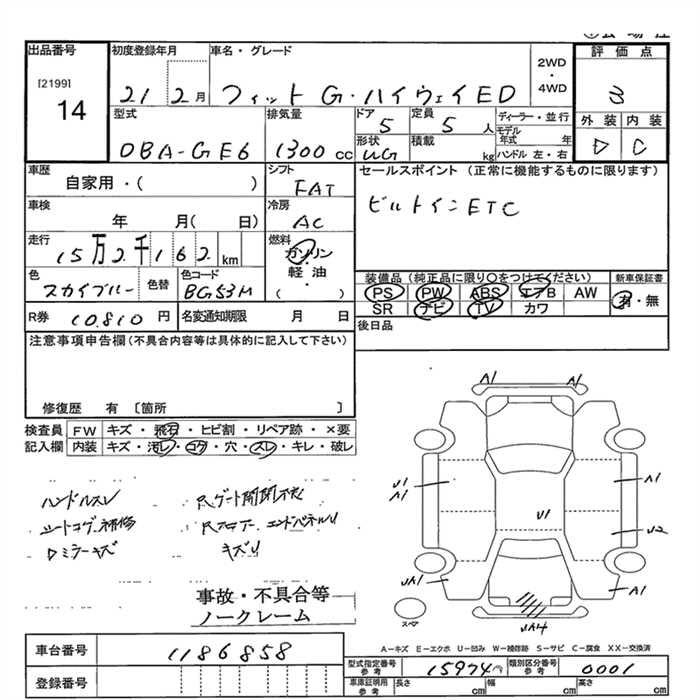 出品番号 初度登録年月 車名・グレード 2WD・4WD 評価点
[2199]
14
21 2月 フィット G・ハイウェイED 3
型式 排気量 ドア 定員 ディーラー・並行 外装 内装
DBA-GE6 1300cc 5 5人 モデル年式 年 D C
形状 積載
UG kg ハンドル 左・右
車歴 シフト セールスポイント (正常に機能するものに限ります)
自家用・( ) FAT
ビルトインETC
車検 冷房
年 月( 日) AC
走行 燃料
15万2千162km ガソリン・軽油・( )
装備品(純正品に限り○をつけてください) 新車保証書
色 色替 色コード
スカイブルー BG53M
PS PW ABS エアB AW 有・無
SR ナビ TV カワ
R券 10,810円 名変通知期限 月 日
後日品
注意事項申告欄(不具合内容等は具体的に記入して下さい)
修復歴 有 〔箇所 〕
検査員 FW キズ・飛石・ヒビ割・リペア跡・×要
記入欄 内装 キズ・汚レ・コゲ・穴・スレ・キレ・破レ
A1 A1
U1 A1
A1
U1
U2
UA1
A1
UA4
スペア
ハンドルスレ
シートコゲ補修
Dミラーキズ
Rゲート開閉不良
Rフロアー、エンドパネルU
キズU
事故・不具合等
ノークレーム
A－キズ E－エクボ U－凹み W－補修跡 S－サビ C－腐食 XX－交換済
車台番号 1186858
登録番号
型式指定番号 参考 15974 類別区分番号 参考 0001
車庫証明用 参考 長さ cm 幅 cm 高さ cm